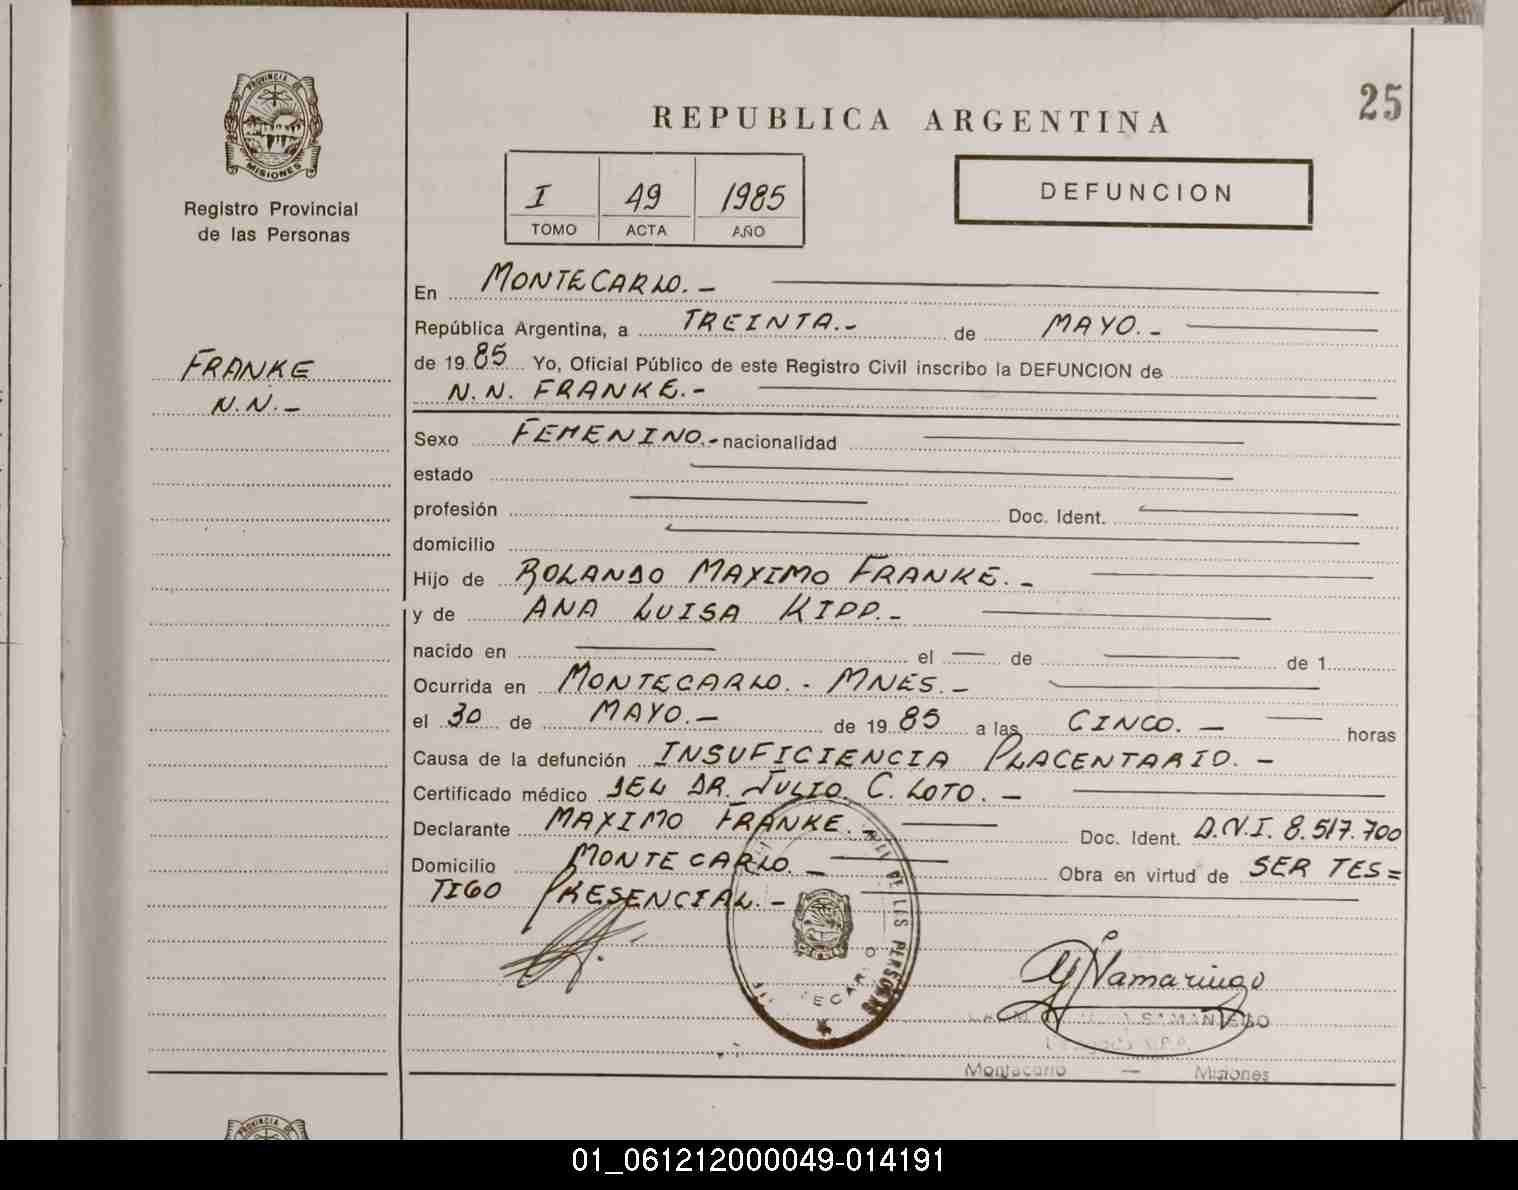 PROVINCIA DE
MISIONES
Registro Provincial
de las Personas
FRANKE
N.N.-
25
REPUBLICA ARGENTINA
I 49 1985
TOMO ACTA AÑO
DEFUNCION
En MONTECARLO.-
República Argentina, a TREINTA.- de MAYO.-
de 1985 Yo, Oficial Público de este Registro Civil inscribo la DEFUNCION de
N.N. FRANKE.-
Sexo FEMENINO.- nacionalidad
estado
profesión Doc. Ident.
domicilio
Hijo de ROLANDO MAXIMO FRANKE.-
y de ANA LUISA KIPP.-
nacido en el de de 1
Ocurrida en MONTECARLO.- MNES.-
el 30 de MAYO.- de 1985 a las CINCO.- horas
Causa de la defunción INSUFICIENCIA PLACENTARIO.-
Certificado médico DEL DR. JULIO C. LOTO.-
Declarante MAXIMO FRANKE.- Doc. Ident. D.N.I. 8.517.700
Domicilio MONTECARLO.- Obra en virtud de SER TES=
TIGO PRESENCIAL.-
DE LAS PERSONAS
Montecarlo — Misiones
PROVINCIA DE
01_061212000049-014191